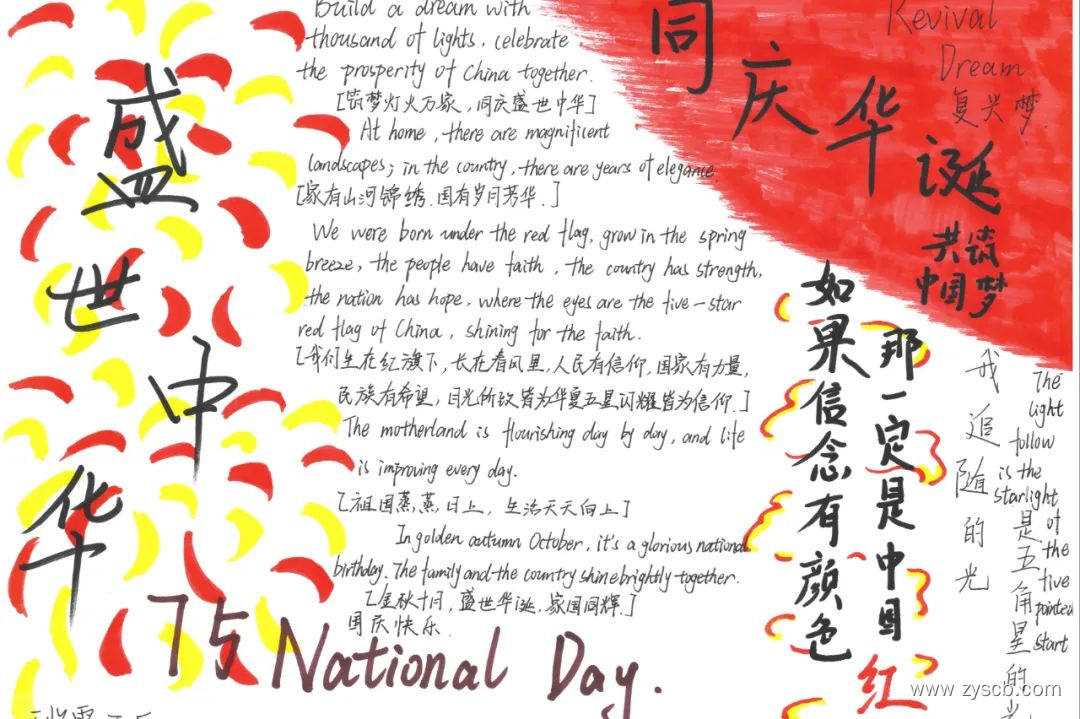 盛世中华
Build a dream with
thousand of lights, celebrate
the prosperity of China together.
[筑梦灯火万家,同庆盛世中华]
At home, there are magnificent
landscapes; in the country, there are years of elegance
[家有山河锦绣.国有岁月芳华.]
We were born under the red flag, grow in the spring
breeze, the people have faith, the country has strength,
the nation has hope, where the eyes are the five-star
red flag of China, shining for the faith.
[我们生在红旗下,长在春风里,人民有信仰,国家有力量,
民族有希望,目光所致皆为华夏五星闪耀皆为信仰.]
The motherland is flourishing day by day, and life
is improving every day.
[祖国蒸蒸日上,生活天天向上]
In golden autumn October, it's a glorious national
birthday. The family and the country shine brightly together.
[金秋十月,盛世华诞,家国同辉.]
国庆快乐.
75 National Day.
同庆华诞
Revival
Dream
复兴梦.
共筑
中国梦
如果信念有颜色
那一定是中国红
我追随的光
是五角星的
The
light
follow
is the
starlight
of
the
five
pointed
start
www.zyscb.com